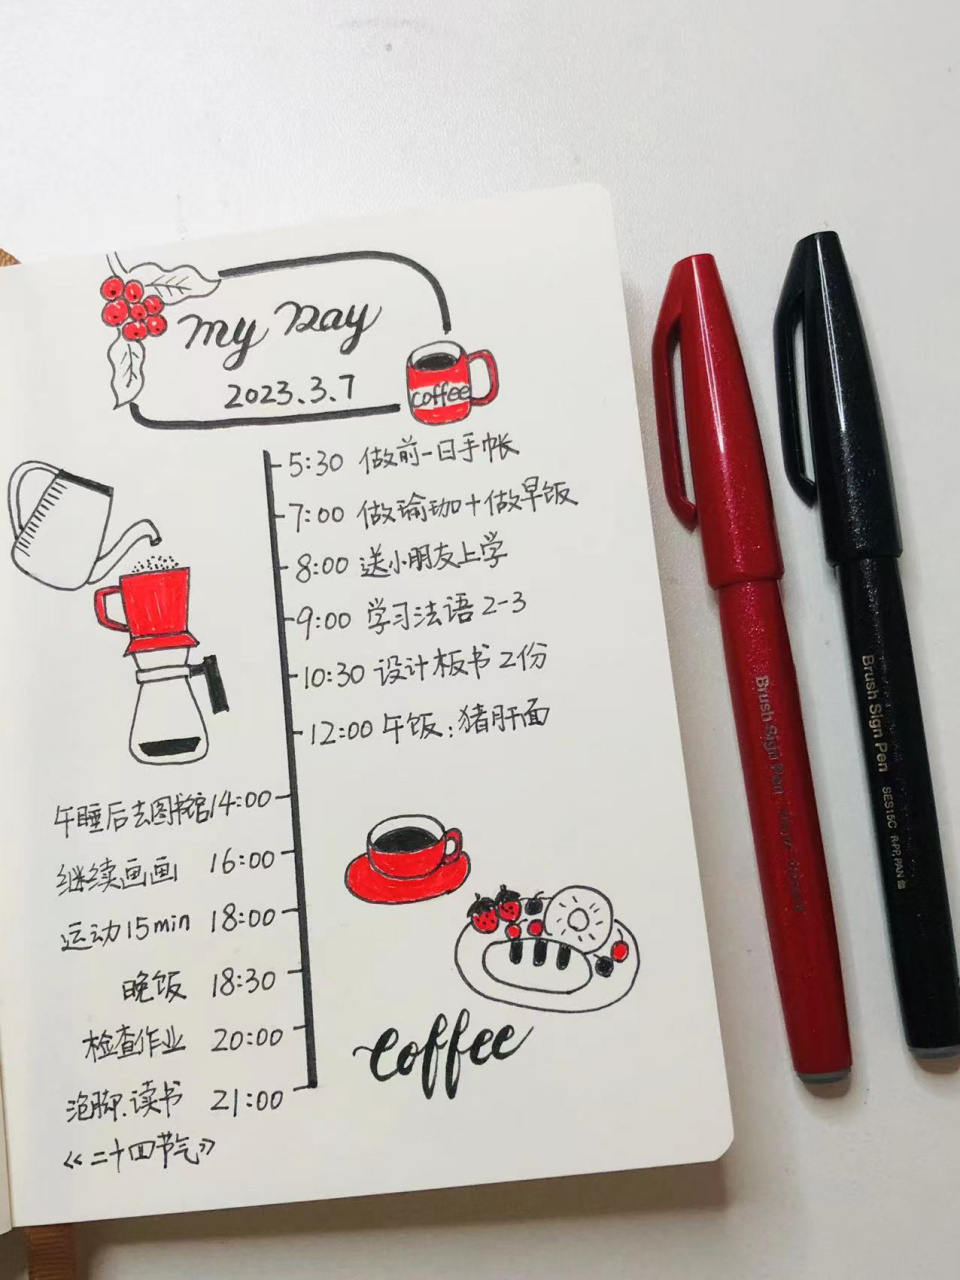 My Day
2023.3.7
coffee
5:30 做前一日手帐
7:00 做瑜珈+做早饭
8:00 送小朋友上学
9:00 学习法语 2-3
10:30 设计板书 2份
12:00 午饭:猪肝面
午睡后去图书馆 14:00
继续画画 16:00
运动15min 18:00
晚饭 18:30
检查作业 20:00
泡脚.读书 21:00
《二十四节气》
coffee
Brush Sign Pen
Brush Sign Pen SES15C